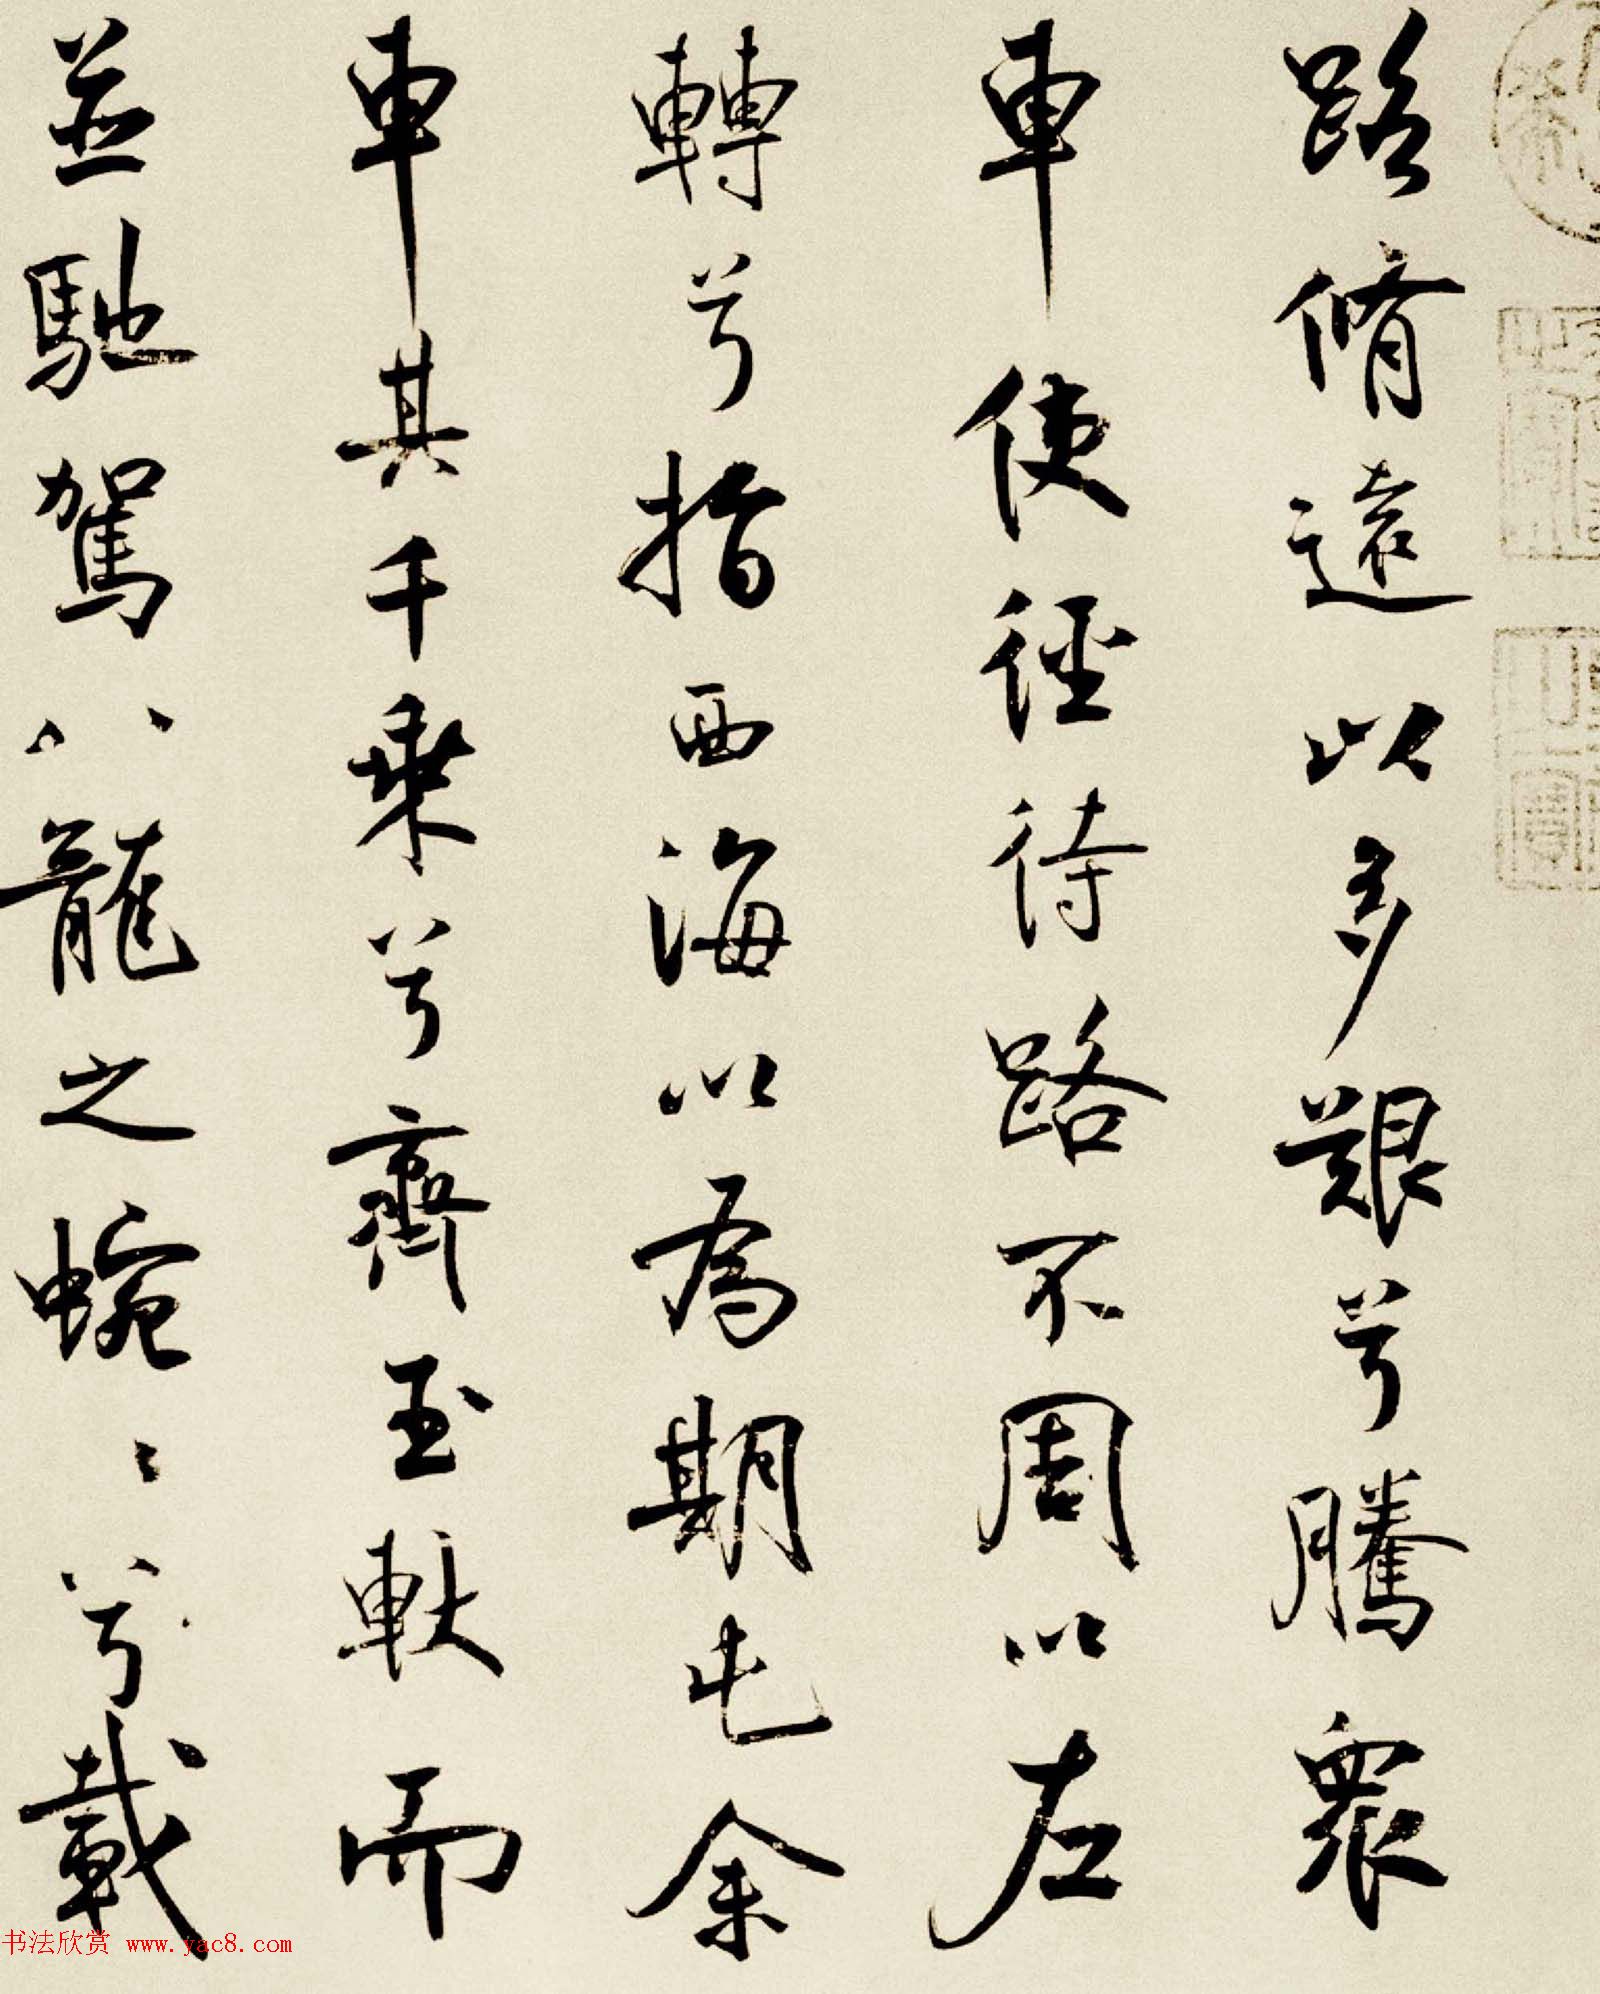 路脩遠以多艱兮騰衆
車使徑待路不周以左
轉兮指西海以為期屯余
車其千乘兮齊玉軑而
並馳駕八龍之蜿〻兮載
书法欣赏 www.yac8.com